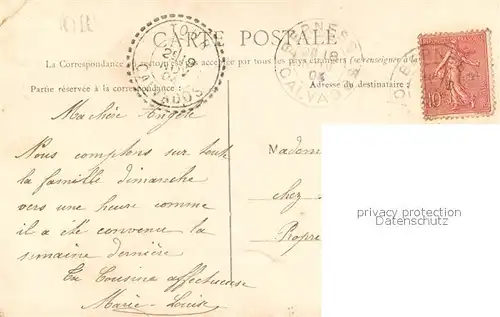 CARTE POSTALE
La Correspondance au recto n'est pas acceptée par tous les pays étrangers (se renseigner à la
Partie réservée à la correspondance :
Adresse du destinataire :
CALVADOS
CALVADOS
10
Ma chère Angèle
Nous comptons sur toute
la famille dimanche
vers une heure comme
il a été convenu la
semaine dernière
Ta Cousine affectueuse
Marie-Louise
Madem
chez
Propre
privacy protection
Datenschutz